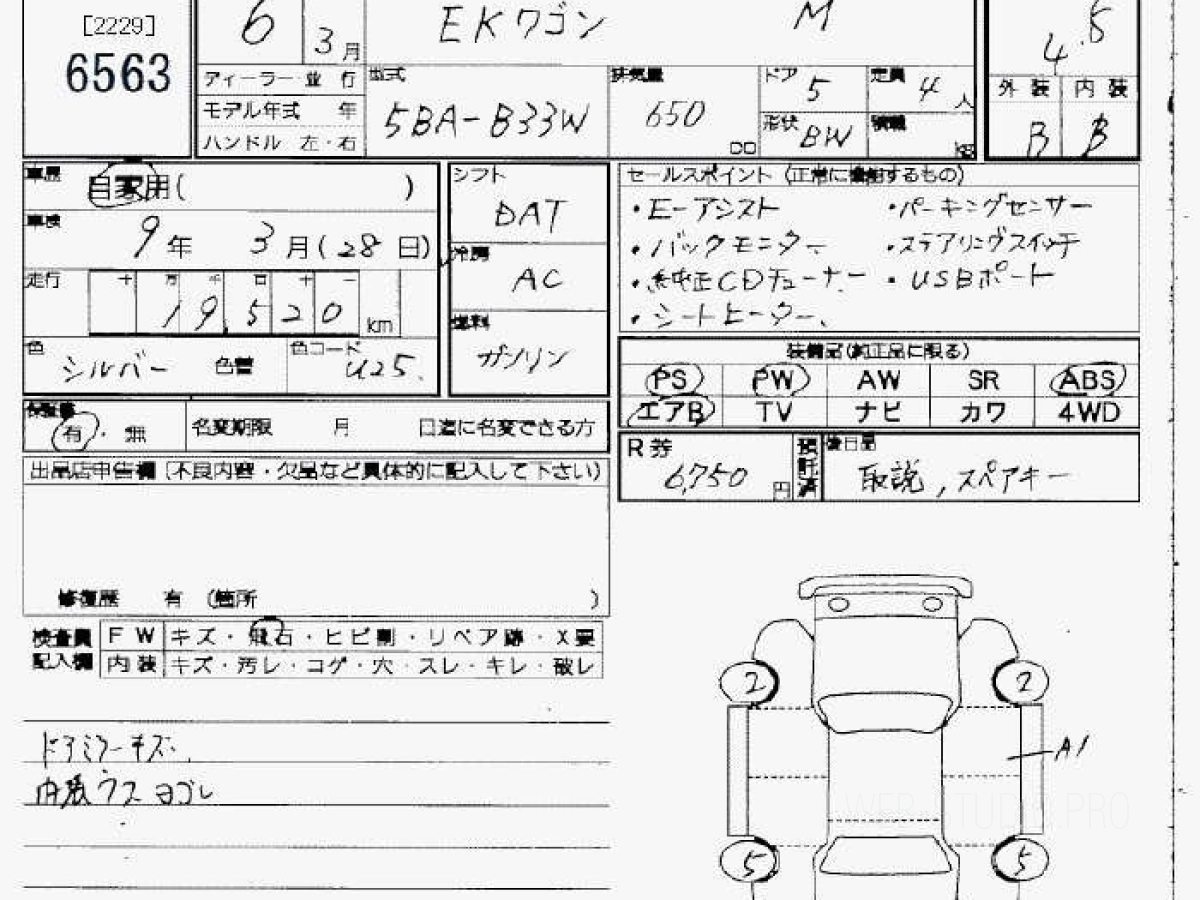 [2229]
6563
6 3月 EKワゴン M 4.5
ディーラー・並行 型式 5BA-B33W 排気量 650 cc ドア 5 定員 4人 外装 内装
モデル年式 年 形状 BW 積載 kg B B
ハンドル 左・右
車歴 自家用( )
車検 9年 3月(28日)
走行 十 万 千 百 十 一
19,520 km
色 シルバー 色替 色コード U25.
シフト DAT
冷房 AC
燃料 ガソリン
セールスポイント (正常に機能するもの)
・E-アシスト ・パーキングセンサー
・バックモニター ・ステアリングスイッチ
・純正CDチューナー ・USBポート
・シートヒーター、
装備品(純正品に限る)
PS PW AW SR ABS
エアB TV ナビ カワ 4WD
保証書 有・無 名変期限 月 日迄に名変できる方
R券 6,750円 預託済 後日品 取説, スペアキー
出品店申告欄(不良内容・欠品など具体的に記入して下さい)
修復歴 有 (箇所 )
検査員記入欄 FW キズ・飛石・ヒビ割・リペア跡・X要
内装 キズ・汚レ・コゲ・穴・スレ・キレ・破レ
ドアミラーキズ、
内装ウスヨゴレ
2 2
A1
5 5
WEB STUDIO PRO